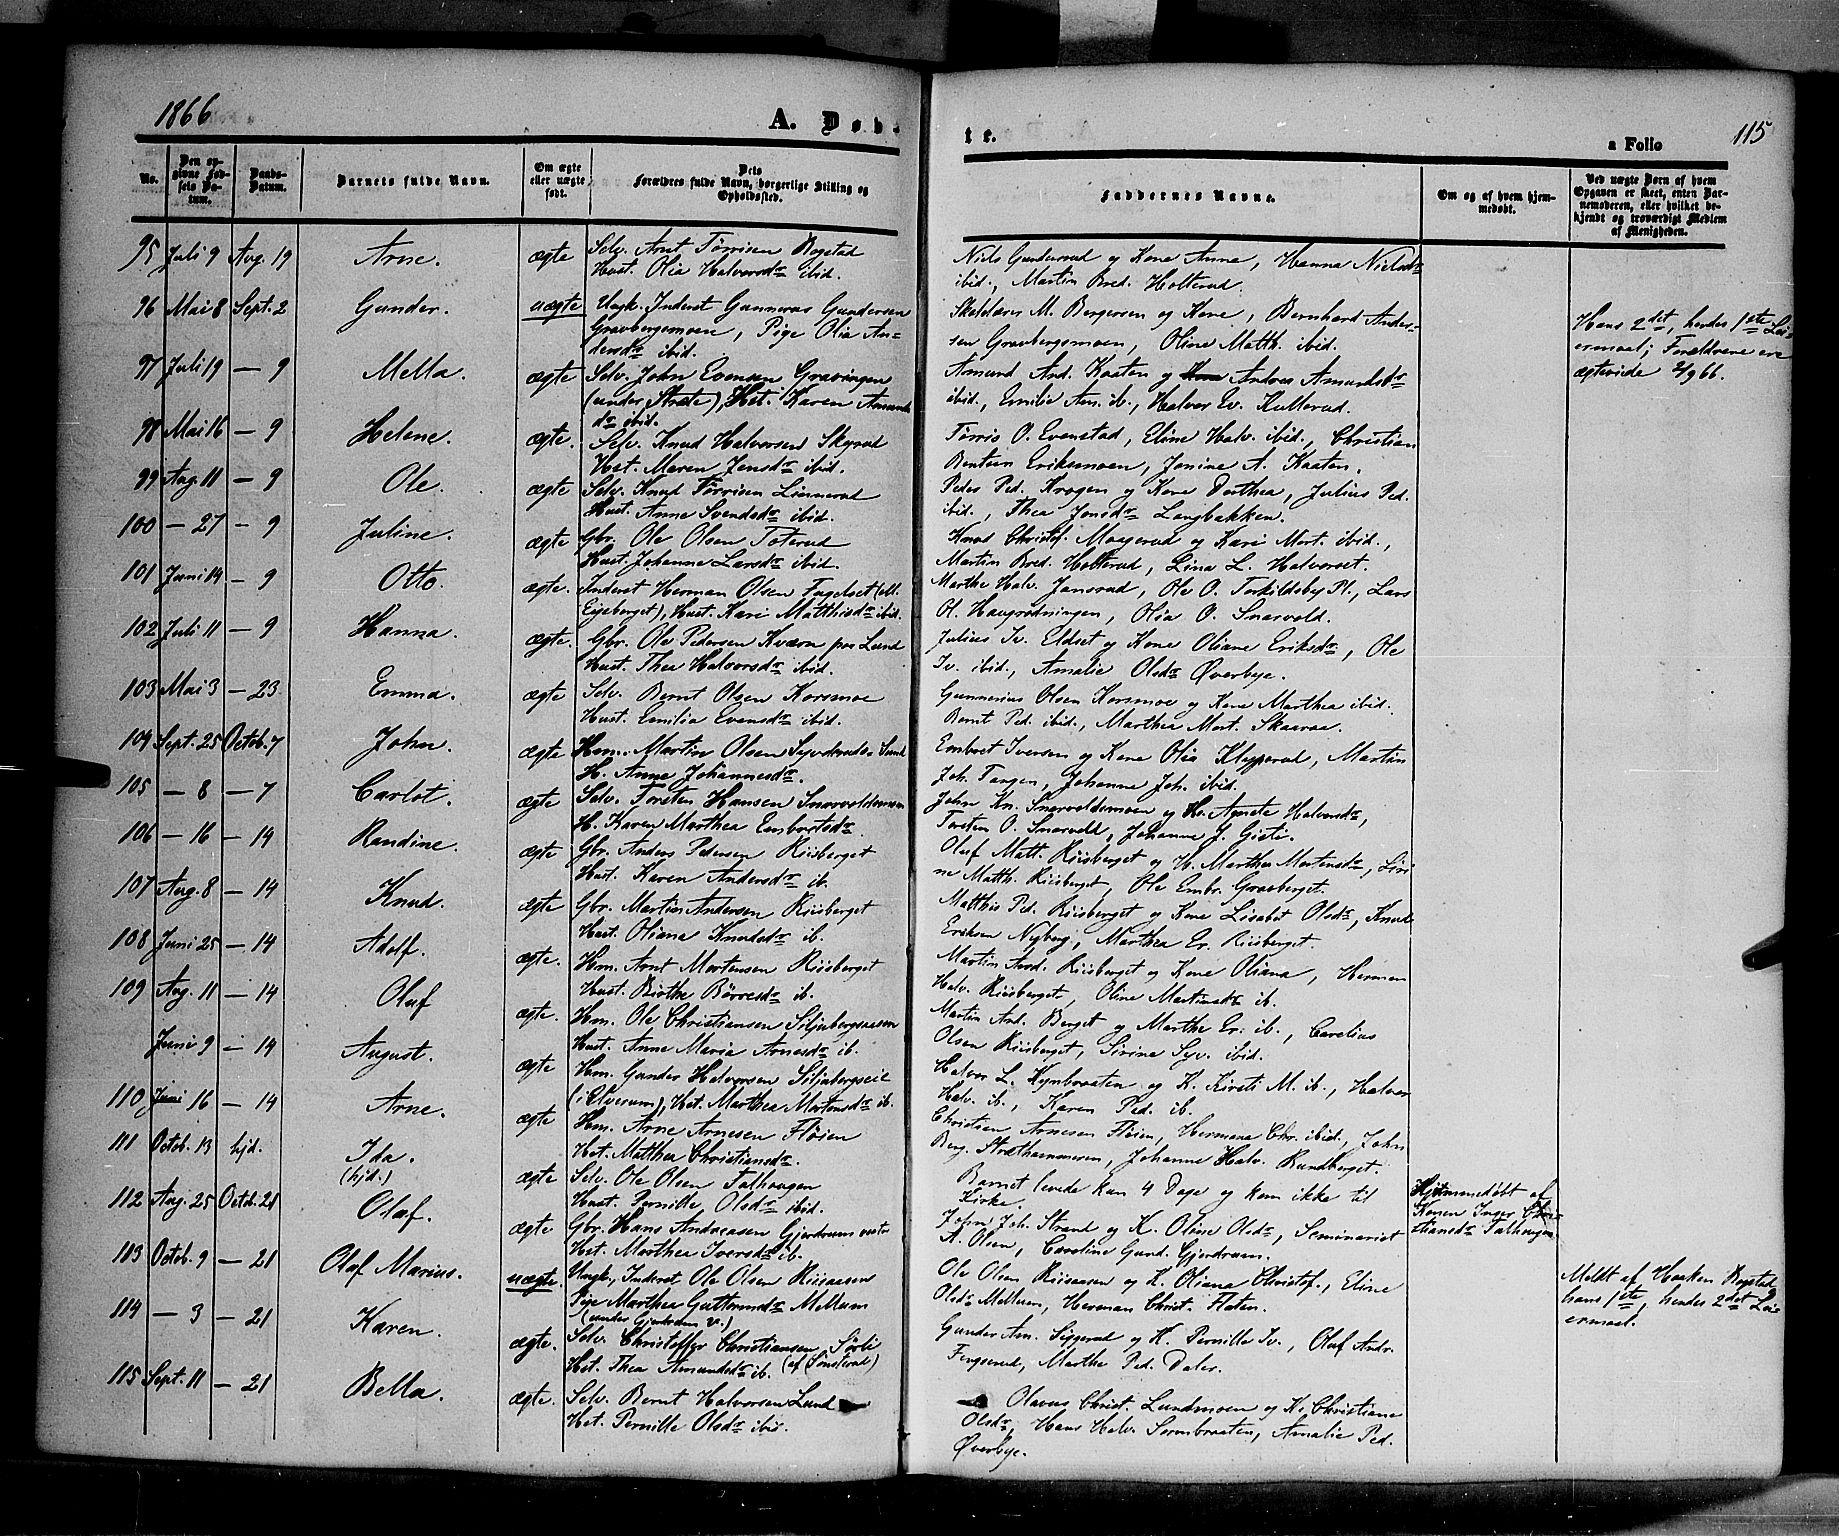 1866
A. Døb-
te.
a Folio
115
No.
Den opgivne Fødsels Datum.
Daabs-Datum.
Barnets fulde Navn.
Om ægte eller uægte født.
Dets Forældres fulde Navn, borgerlige Stilling og Opholdssted.
Faddernes Navne.
Om og af hvem hjemmedøbt.
Ved uægte Børn af hvem Opgaven er skeet, enten Barnemoderen, eller hvilket bekjendt og troværdigt Medlem af Menigheden.
95 Juli 9 Aug. 19 Arne. ægte Selv. Arnt Tørrisen Rogstad
Hust. Olia Halvorsdr ibid.
Niels Gundersrud og Kone Anna, Hanna Nielsdr
ibid., Martin Bred. Holterud.
96 Mai 8 Sept. 2 Gunder. uægte Ungk. Inderst Gunnerus Gundersen
Gravbergsmoen, Pige Olia An-
dersdr ibid.
Skolelærer M. Bergersen og Kone, Bernhard Ander-
sen Gravbergsmoen, Oline Matth. ibid.
Hans 2det, hendes 1ste Lei-
ermaal; Forældrene ere
ægteviede 2/9 66.
97 Juli 19 — 9 Mella. ægte Selv. John Evensen Gravingen
(under Stræte), Hst. Karen Amunds
dr ibid.
Amund And. Kaaten og Kone Andrea Amundsdr
ibid., Emilie Am. ib., Halvor Ev. Kullerud.
98 Mai 16 — 9 Helene. ægte. Selv. Knud Halvorsen Skyrud
Hst. Maren Jensdr ibid.
Tørris O. Evenstad, Eline Halv. ibid., Christian
Bentsen Eriksmoen, Jonine A. Kaaten.
99 Aug. 11 — 9 Ole. ægte Selv. Knud Tørrisen Linnerud
Hust. Anne Svendsdr ibid.
Peder Ped. Krogen og Kone Dorthea, Julius Ped.
ibid., Thea Jonsdr Langbakken.
100 — 27 — 9 Juline. ægte Gbr. Ole Olsen Toterud
Hust. Johanne Larsdr ibid.
Knud Christof. Maserud og Kari Mort. ibid.,
Martin Bred. Holterud, Lina L. Halvorset.
101 Juni 14 — 9 Otto. ægte. Inderst Herman Olsen Fugelset
Eisberget), Hust. Kari Matthisdr ibid.
Marthe Halv. Jansrud, Ole O. Torkildsby Pl., Lars
Ol. Haugrødningen, Olia O. Snarvold.
102 Juli 11 — 9 Hanna. ægte. Gbr. Ole Pedersen Kværn paa Lund
Hust. Thea Halvorsdr ibid.
Julius Iv. Eldset og Kone Oliane Eriksdr, Ole
Iv. ibid., Amalie Olsdr Øverbye.
103 Mai 3 — 23 Emma. ægte Selv. Bernt Olsen Korsmoe
Hust. Emilia Evensdr ibid.
Gunnerius Olsen Korsmoe og Kone Marthea ibid.
Bernt Ped. ibid., Marthea Mort. Skaaraa.
104 Sept. 25 Octob. 7 John. ægte Hm. Martin Olsen
H. Anne Johannesdr.
Embret Iversen og Kone Olia Klypperud, Martin
Joh. Tangen, Johanne Joh. ibid.
105 — 8 — 7 Carlot. ægte Selv. Torsten Hansen Snarvoldsmoen
H. Karen Marthea Embretsdr.
John Kn. Snarvoldsmoen og Ko. Agnete Halvorsdr,
Torsten O. Snarvold, Johanne J. Gisti.
106 — 16 — 14 Randine. ægte Gbr. Anders Pedersen Riisberget
Hust. Karen Andersdr ib.
Oluf Matt. Riisberget og H. Marthea Mortensdr, Siri-
ne Matth. Riisberget, Ole Embr. Gravberget.
107 Aug. 8 — 14 Knud. ægte Gbr. Martin Andersen Riisberget
Hust. Oliana Knudsdr ib.
Matthis Ped. Riisberget og Kone Lisabet Olsdr, Knud
Eriksen Nyberg, Marthea Er. Riisberget.
108 Juni 25 — 14 Adolf. ægte. Hm. Arnt Mortensen Riisberget
Hust. Birthe Børresdr ib.
Martin And. Riisberget og Kone Oliana, Herman
Halv. Riisberget, Oline Martinsdr ib.
109 Aug. 11 — 14 Oluf ægte. Hm. Ole Christiansen Siljubergsaasen
Hust. Anne Maria Arnesdr ib.
Martin And. Berget og Marthe Er. ib., Carelius
Olsen Riisberget, Sirine Syv. ibid.
Juni 9 — 14 August. ægte Hm. Gunder Halvorsen Siljubergseie
(i Elverum), Hst. Marthea Mortensdr ib.
Halvor L. Kynbraaten og K. Kirsti M. ib., Halvor
Halv. ib., Karen Ped. ib.
110 Juni 16 — 14 Arne. ægte Hm. Arne Arnesen Fløien
Hst. Matthea Christiansdr.
Christian Arnesen Fløien, Hermana Chr. ibid., John
Berg. Stræthammeren, Johanne Halv. Rundberget.
111 Octob. 13 hjd. Ida.
(hjd.) ægte Selv. Ole Olsen Falhaugen
Hust. Pernille Olsdr ibid.
Barnet levede kun 4 Dage og kom ikke til
Kirke.
Hjemmedøbt af
Konen Inger Chri-
stiansdr Falhaugen
112 Aug. 25 Octob. 21 Olaf. ægte Gbr. Hans Andreasen Gjerdrum vestr
Hst. Marthea Iversdr ib.
John Joh. Strand og K. Oline Olsdr, Seminarist
A. Olsen, Caroline Gund. Gjerdrum.
113 Octob. 9 — 21 Olaf Marius. uægte. Ungk., Inderst Ole Olsen Riisaasen
Pige Marthea Guttormsdr Mellum
(under Gjerdrum v.)
Ole Olsen Riisaasen og K. Oliana Christof., Eline
Olsdr Mellum, Herman Christ. Flaten.
Meldt af Haaken Rogstad
hans 1ste, hendes 2det Lei-
ermaal.
114 — 3 — 21 Karen. ægte. Selv. Christoffer Christiansen Sørli
Hst. Thea Amundsdr ib. (af Sønsterud)
Gunder Am. Siggerud og K. Pernille Iv., Oluf Andr.
Fergserud, Marthe Ped. Daler.
115 Sept. 11 — 21 Bella. ægte. Selv. Bernt Halvorsen Lund
Hst. Pernille Olsdr ibid.
Olavus Christ. Lundmoen og K. Christiane
Olsdr, Hans Halv. Sormbraaten, Amalie Ped.
Øverbye.